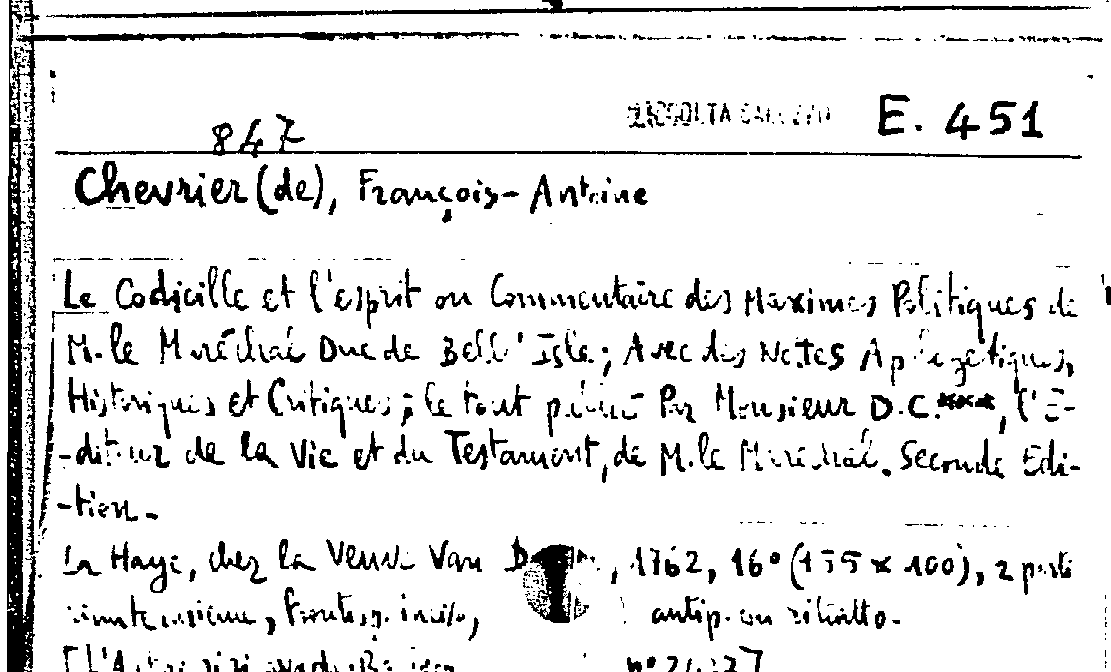 847 RACCOLTA E. 451
Chevrier (de), François-Antoine
Le Codicille et l'esprit ou Commentaire des Maximes Politiques de
M. le Maréchal Duc de Bell'Isle; Avec des Notes Apologetiques,
Historiques et Critiques; le tout publié Par Monsieur D.C.***, l'É-
-diteur de la Vie et du Testament, de M. le Maréchal. Seconde Edi-
-tion.
La Haye, chez la Veuve Van , 1762, 16° (155 x 100), 2 parti
insieme, frontesp. inciso, antip. un ritratto.